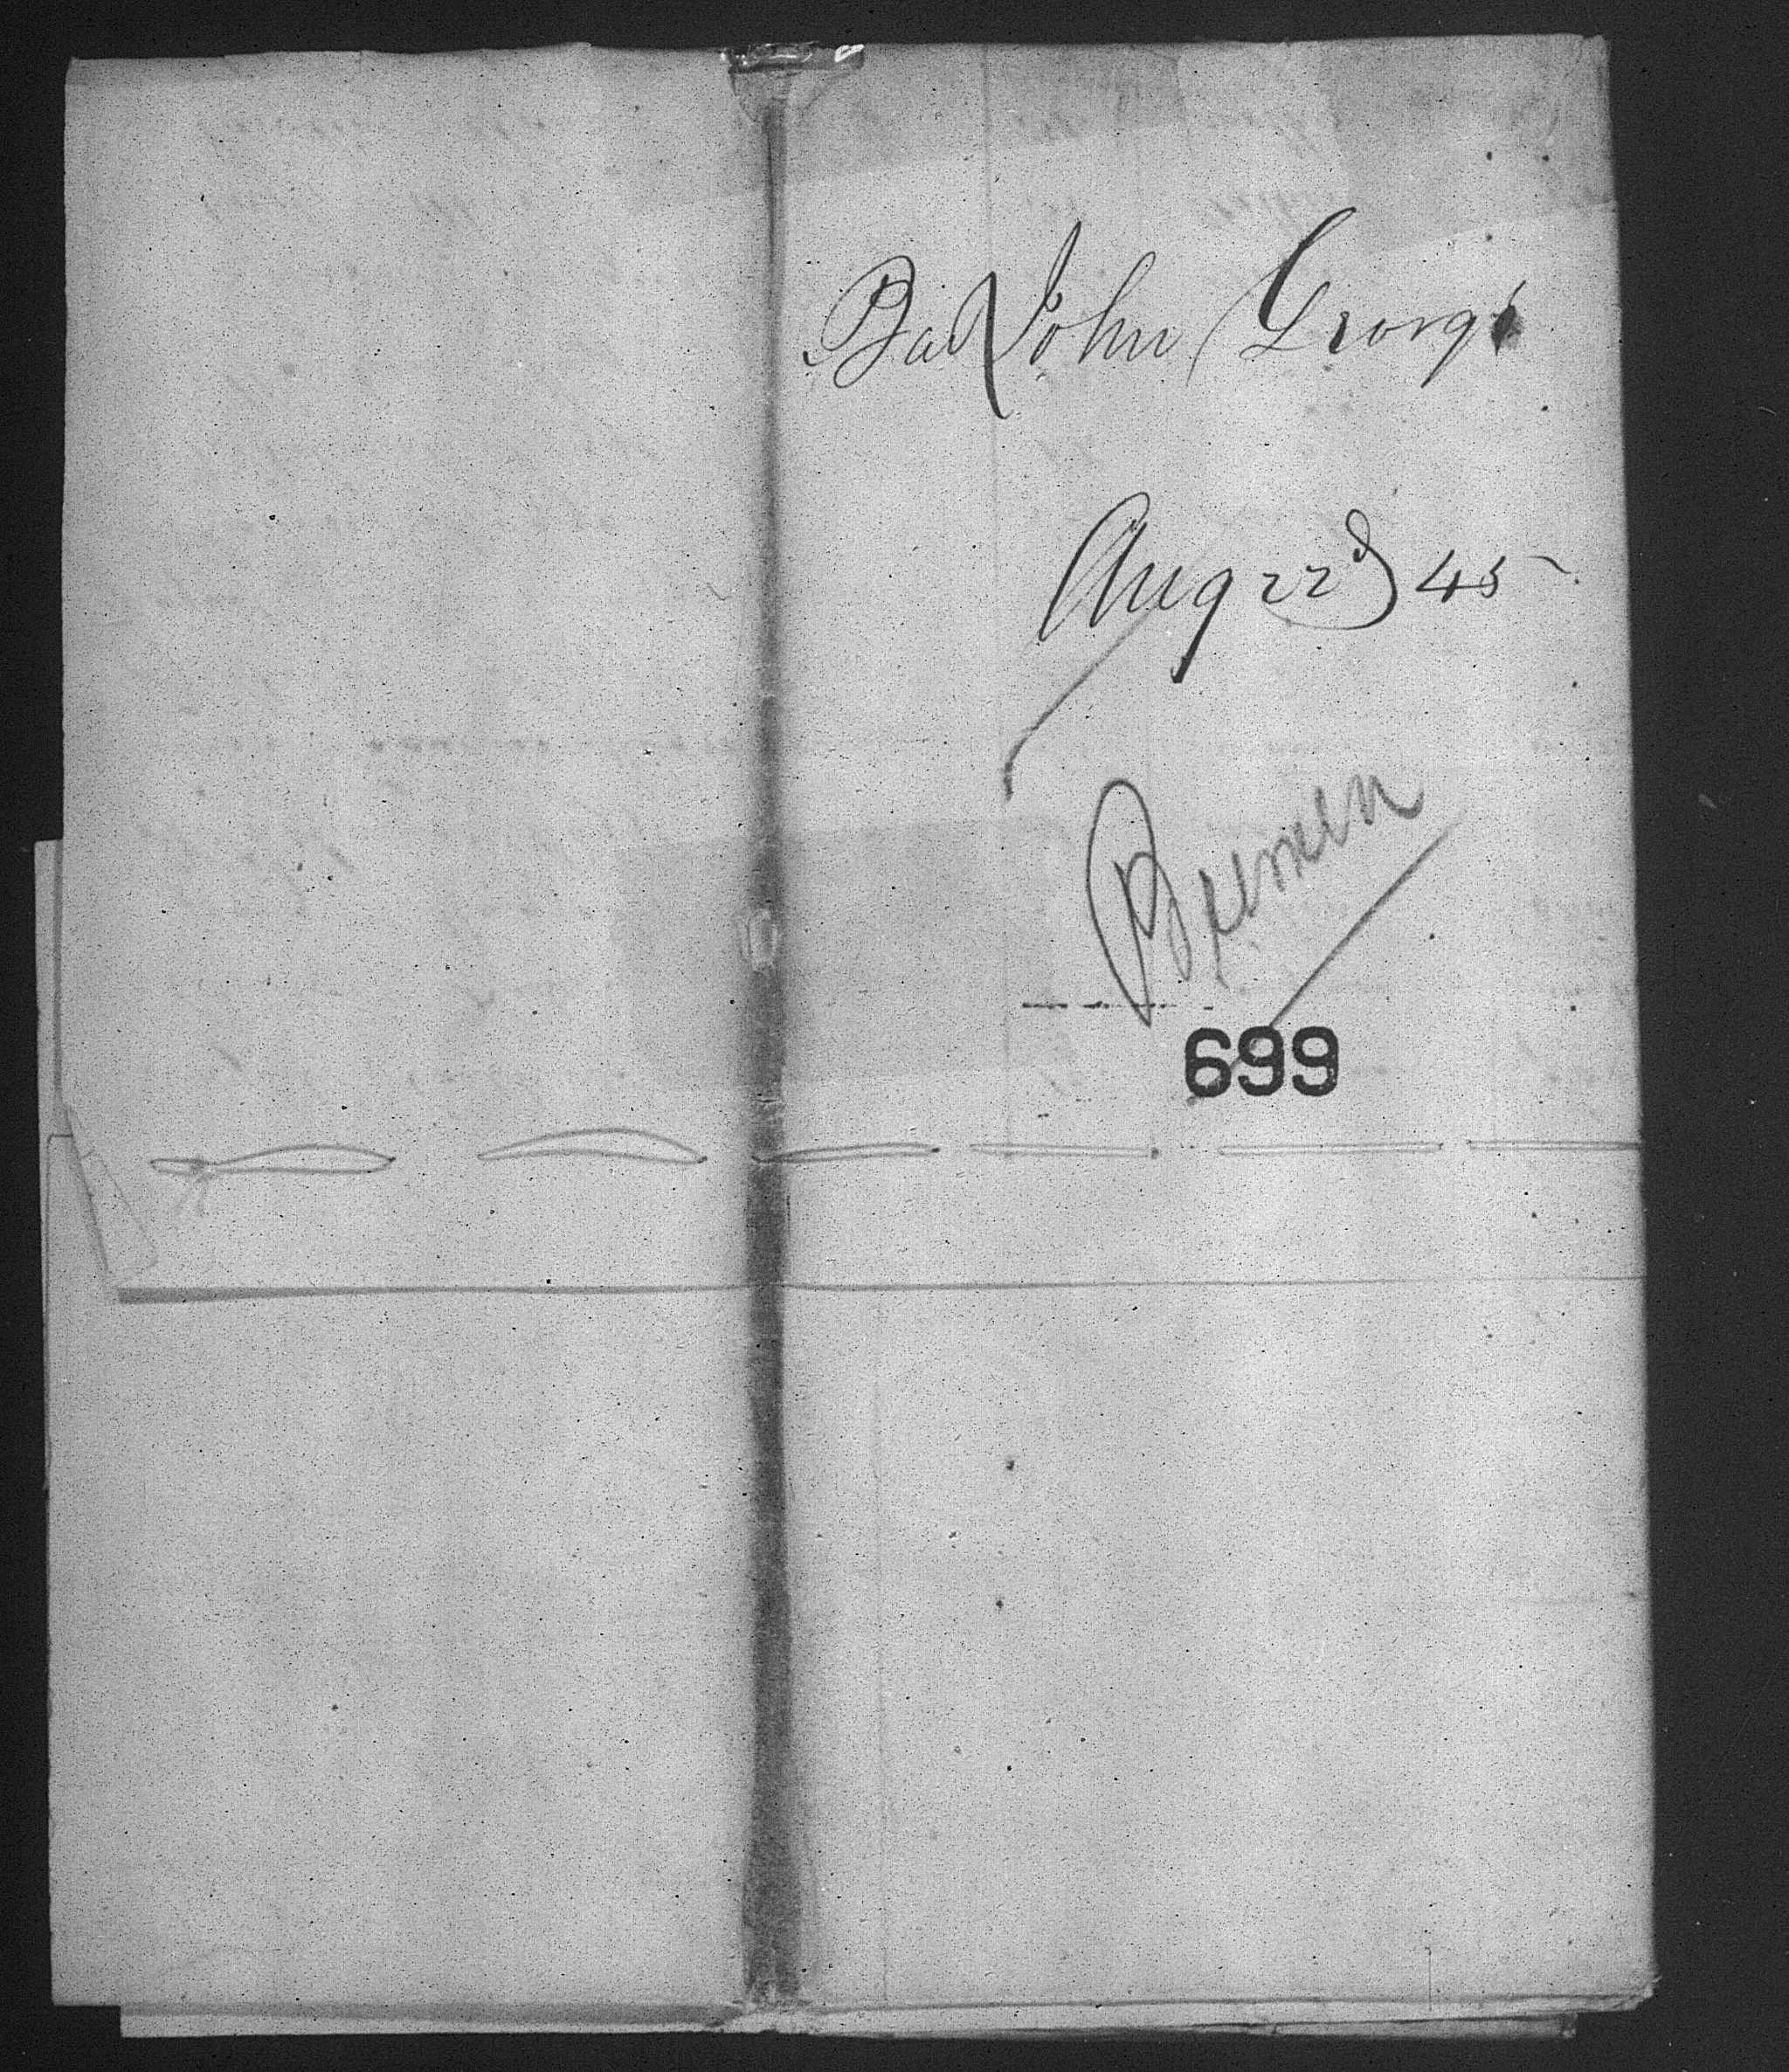 Bar John George
Aug 22d 45
Bremen
699